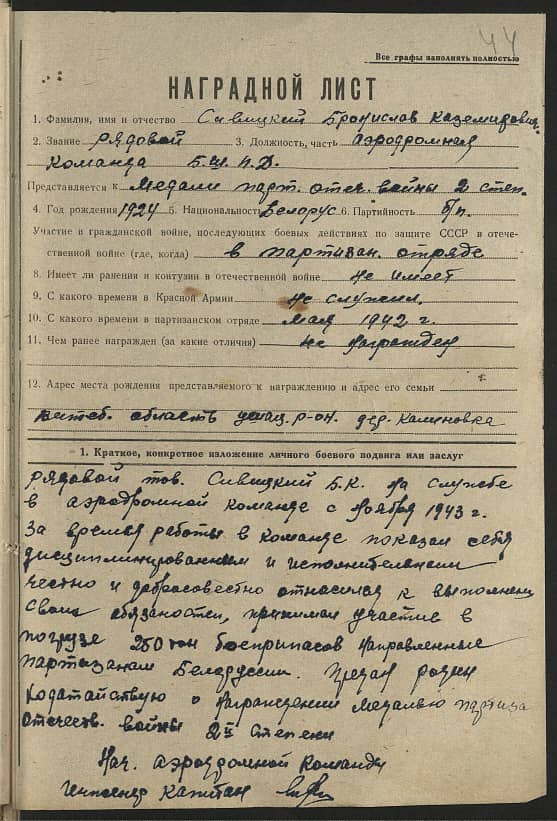 44
Все графы заполнять полностью
НАГРАДНОЙ ЛИСТ
1. Фамилия, имя и отчество Сивицкий Бронислав Каземирович
2. Звание рядовой 3. Должность, часть аэродромная
команда Б.Ш.П.Д.
Представляется к медали парт. отеч. войны 2 степ.
4. Год рождения 1924 5. Национальность Белорус 6. Партийность б/п.
Участие в гражданской войне, последующих боевых действиях по защите СССР в отече-
ственной войне (где, когда) в партизан. отряде
8. Имеет ли ранения и контузии в отечественной войне не имеет
9. С какого времени в Красной Армии не служил.
10. С какого времени в партизанском отряде мая 1942 г.
11. Чем ранее награжден (за какие отличия) не награжден
12. Адрес места рождения представляемого к награждению и адрес его семьи
витеб. область ушац. р-он. дер. Калиновка
1. Краткое, конкретное изложение личного боевого подвига или заслуг
Рядовой тов. Сивицкий Б.К. на службе
в аэродромной команде с ноября 1943 г.
За время работы в команде показал себя
дисциплинированным и исполнительным
честно и добросовестно относился к выполнени
своих обязаностей, принимал участие в
погрузе 250 тон боеприпасов направленные
партизанам Белоруссии. Предан родине
Ходатайствую о награждении медалью партиза
отечеств. войны 2й степени
Нач. аэродромной команды
инженер капитан